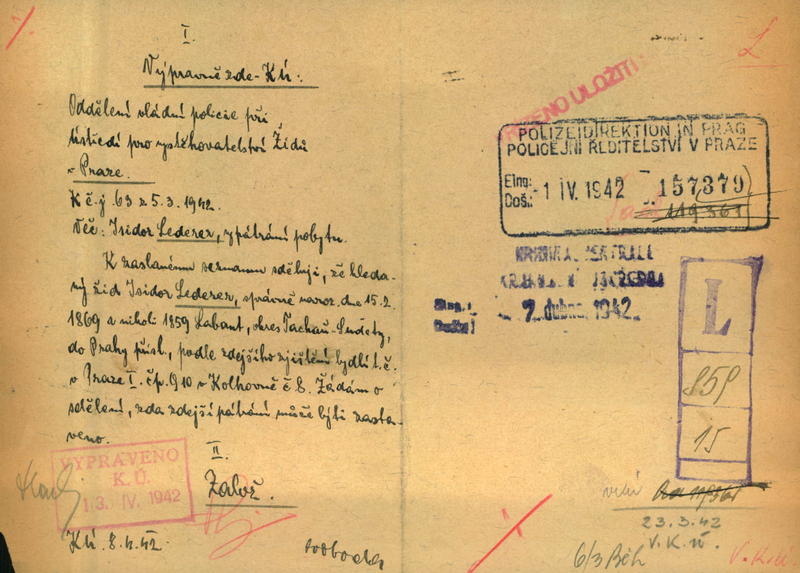 I.
Výpravně zde - KÚ:
Oddělení vládní policie při
ústředí pro vystěhovalectví Židů
v Praze.
K č.j. 63 z 5.3.1942.
Věc: Isidor Lederer, vypátrání pobytu.
K zaslanému seznamu sděluji, že hleda-
ný žid Isidor Lederer, správně naroz. dne 15.2.
1869 a nikoli 1859 Labant, okres Tachau-Sudety,
do Prahy přísl., podle zdejšího zjištění bydlí t.č.
v Praze I. čp. 910 v Kolkovně č 8. Žádám o
sdělení, zda zdejší pátrání může býti zasta-
veno.
II.
Založ.
VYPRAVENO
K. Ú.
13. IV. 1942
KÚ. 8.4.42.
Svoboda
L
ULOŽITI
POLIZEIDIREKTION IN PRAG
POLICEJNÍ ŘEDITELSTVÍ V PRAZE
Eing:
Doš.: -1 IV. 1942 157379
119361
7. dubna 1942
L
859
15
23.3.42
V.K.Ú.
6/3 Běh
V.K.Ú.